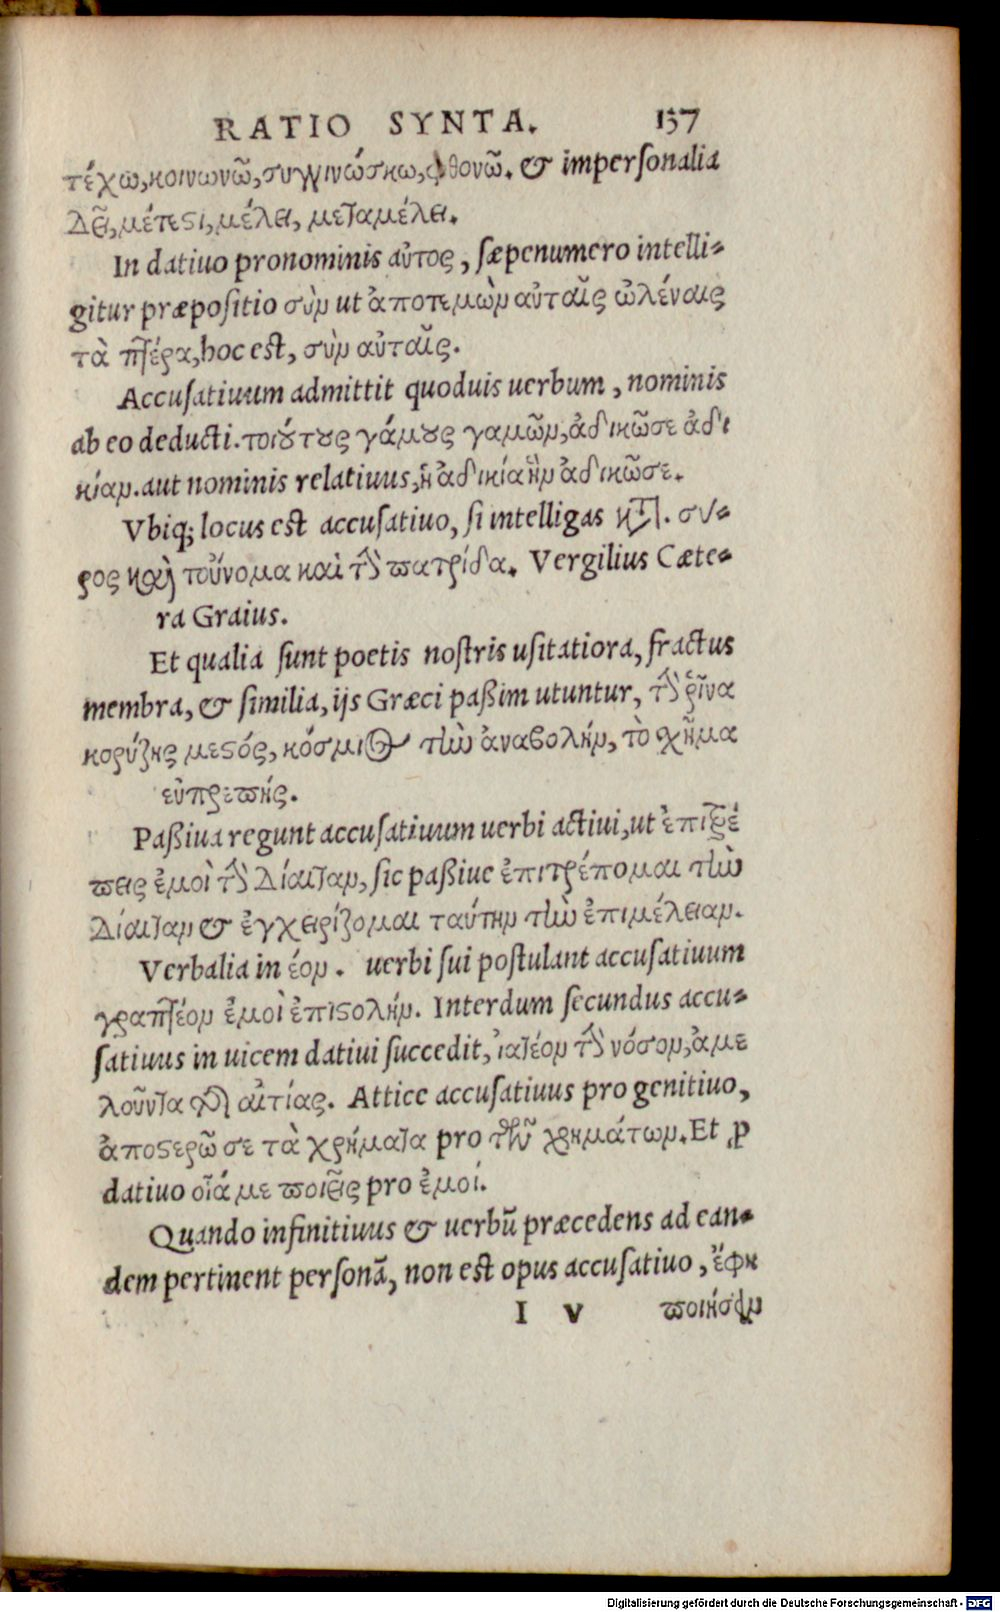 RATIO SYNTA. 137
τέχω, κοινωνῶ, συγγινώσκω, φθονῶ. & impersonalia
Δεῖ, μέτεστι, μέλει, μεταμέλει.
In datiuo pronominis αὐτος, sæpenumero intelli-
gitur præpositio σὺν ut ἀποτεμὼν αὐταῖς ὠλέναις
τὰ πτέρα, hoc est, σὺν αὐταῖς.
Accusatiuum admittit quoduis uerbum, nominis
ab eo deducti. τοιούτους γάμους γαμῶν, ἀδικῶσε ἀδι
κίαν. aut nominis relatiuus, ἡ ἀδικία ἣν ἀδικῶσε.
Vbiq; locus est accusatiuo, si intelligas κτ. σύ-
ρος καὶ τοὔνομα καὶ τὴν πατρίδα. Vergilius Cæte-
ra Graius.
Et qualia sunt poetis nostris usitatiora, fractus
membra, & similia, ijs Græci paßim utuntur, τὴν ῥῖνα
κορύζης μεστός, κόσμιος τὴν ἀναβολήν, τὸ σχῆμα
εὐπρεπής.
Paßiua regunt accusatiuum uerbi actiui, ut ἐπιτρέ
πεις ἐμοὶ τὴν Δίαιταν, sic paßiue ἐπιτρέπομαι τὴν
Δίαιταν & ἐγχειρίζομαι ταύτην τὴν ἐπιμέλειαν.
Verbalia in έον. uerbi sui postulant accusatiuum
γραπτέον ἐμοὶ ἐπιστολήν. Interdum secundus accu-
satiuus in uicem datiui succedit, ἰατέον τὴν νόσον, ἀμε
λοῦντα τῆς αἰτίας. Attice accusatiuus pro genitiuo,
ἀποστερῶ σε τὰ χρήματα pro τῶν χρημάτων. Et ꝓ
datiuo οἷά με ποιεῖς pro ἐμοί.
Quando infinitiuus & uerbũ præcedens ad ean-
dem pertinent personã, non est opus accusatiuo, ἔφη
I V ποιήσειν